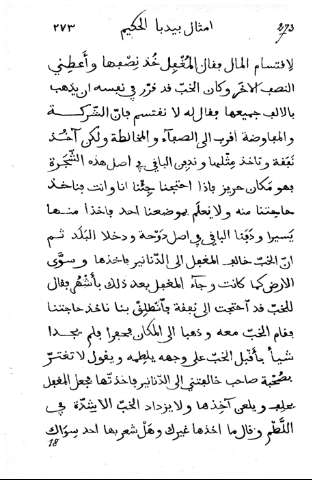 ٢٧٣ امثال بيدبا الحكيم 273
لاقتسام المال فقال المغفل خُذ نِصْفها وأعطِني
النصف الاخر وكان الخَبّ قد قرّر في نفسه ان يذهب
بالالف جميعها فقال له لا نقتسم فانّ الشركة
والمفاوضة اقرب الى الصفآء والمخالطة ولكن آخُذ
نَفقة وتاخذ مِثْلها وندفن الباقي في اصل هذه الشَجرة
فهو مَكان حريز فاذا احتجنا جئنا انا وانت فناخذ
حاجتنا منه ولا يَعْلم بموضعنا احد فاخذا منها
يَسيرا ودَفنا الباقي في اصل دَوْحة ودخلا البَلَد ثم
انّ الخبّ خالف المغفل الى الدّنانير فاخذها وسوَّى
الارض كما كانت وجآء المغفل بعد ذلك بأشْهُر فقال
للخبّ قد احتجت الى نفقة فآنْطَلِقْ بنا ناخذ حاجتنا
فقام الخبّ معه وذهبا الى المكان فحفرا فلم يجدا
شيأ فأقبل الخبّ على وجهه يلطمه ويقول لا تغترّ
بصُحْبة صاحب خالفتني الى الدّنانير فاخذتها فجعل المغفل
يحلف ويلعن آخِذها ولا يزداد الخبّ الا شِدّة في
اللّطْم وقال ما اخذها غيرك وهَلْ شعر بها احد سِوَاك
18